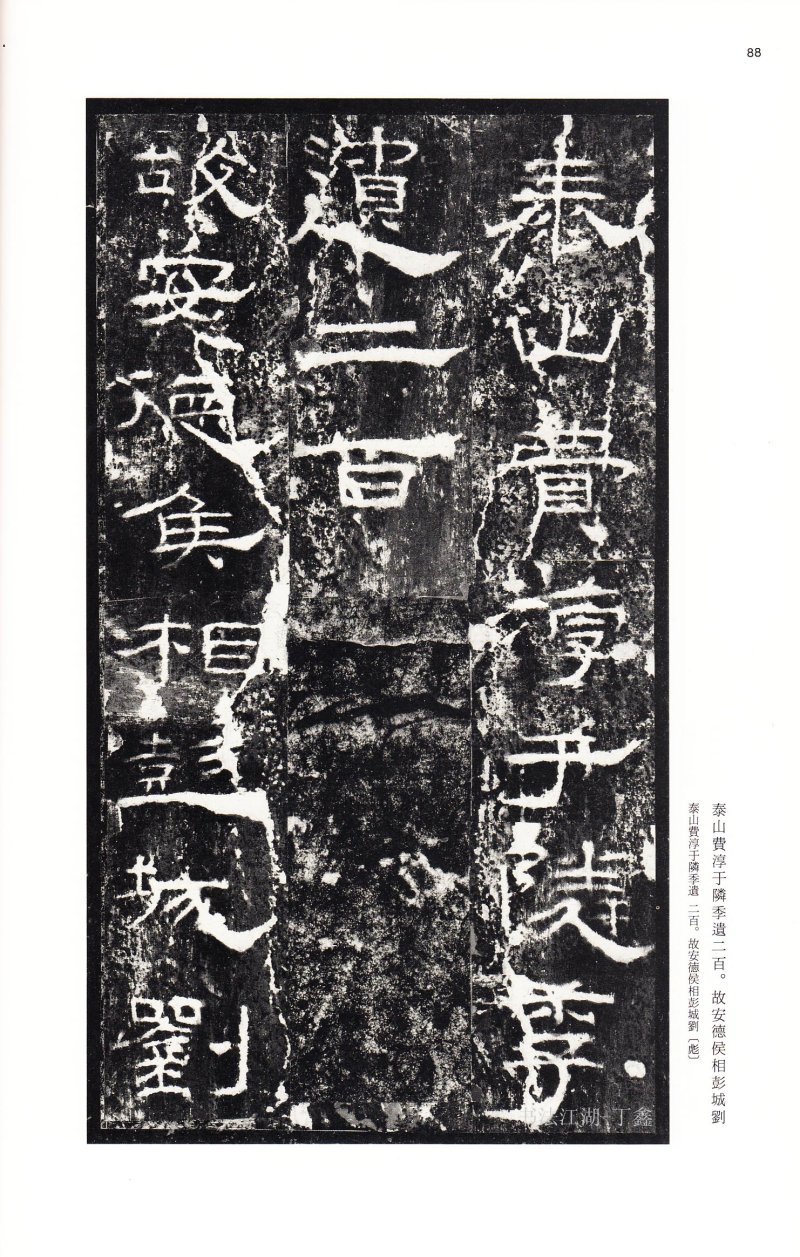 88
泰山費淳于隣季
遺二百
故安德侯相彭城劉
泰山費淳于隣季遺二百。故安德侯相彭城劉
泰山費淳于隣季遺 二百。故安德侯相彭城劉〔彪〕
书法江湖-丁鑫